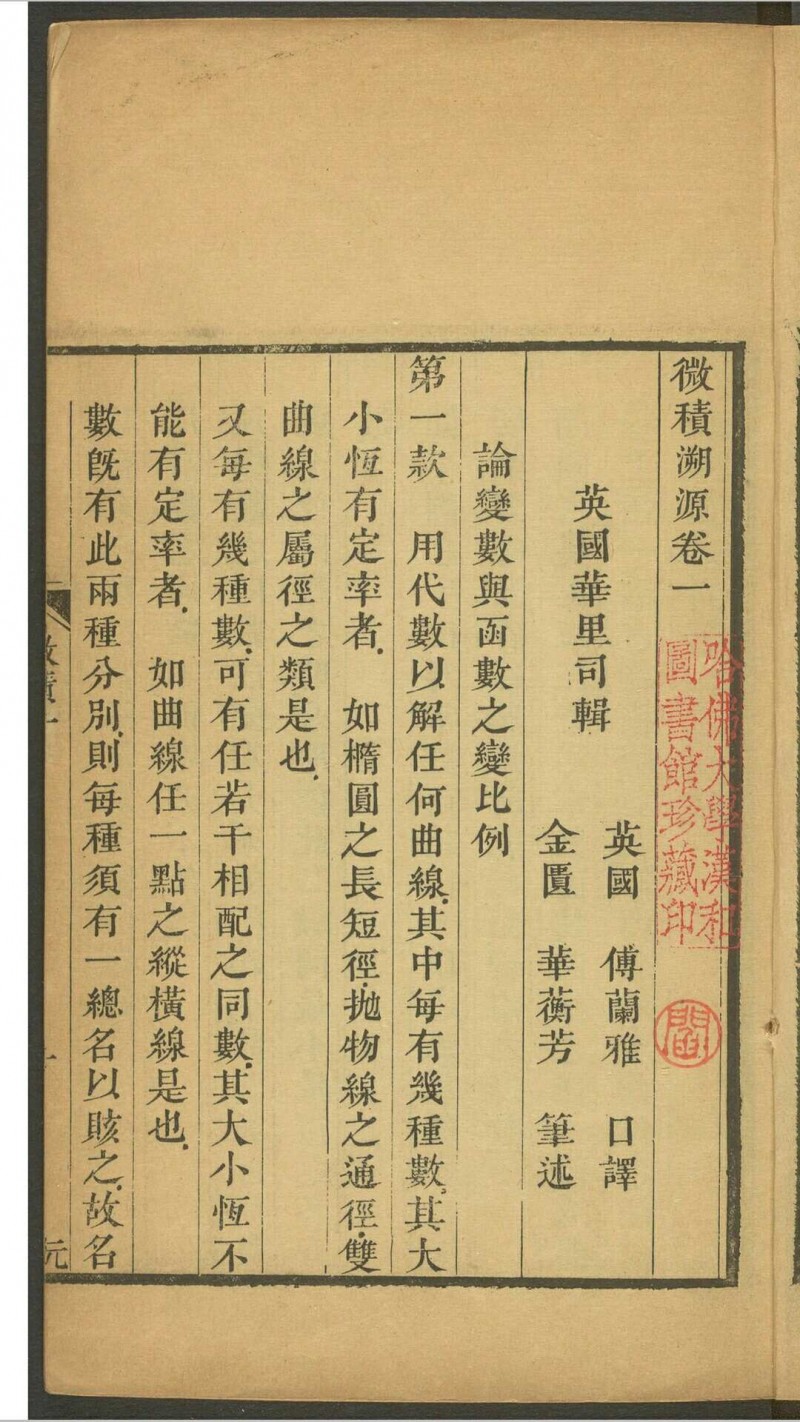 微積溯源卷一
英國華里司輯
英國 傅蘭雅 口譯
金匱 華蘅芳 筆述
論變數與函數之變比例
第一款 用代數以解任何曲線.其中每有幾種數.其大
小恆有定率者. 如橢圓之長短徑.拋物線之通徑.雙
曲線之屬徑之類是也.
又每有幾種數.可有任若干相配之同數.其大小恆不
能有定率者. 如曲線任一點之縱橫線是也.
數旣有此兩種分別.則每種須有一總名以賅之.故名
哈佛大學漢和
圖書館珍藏印